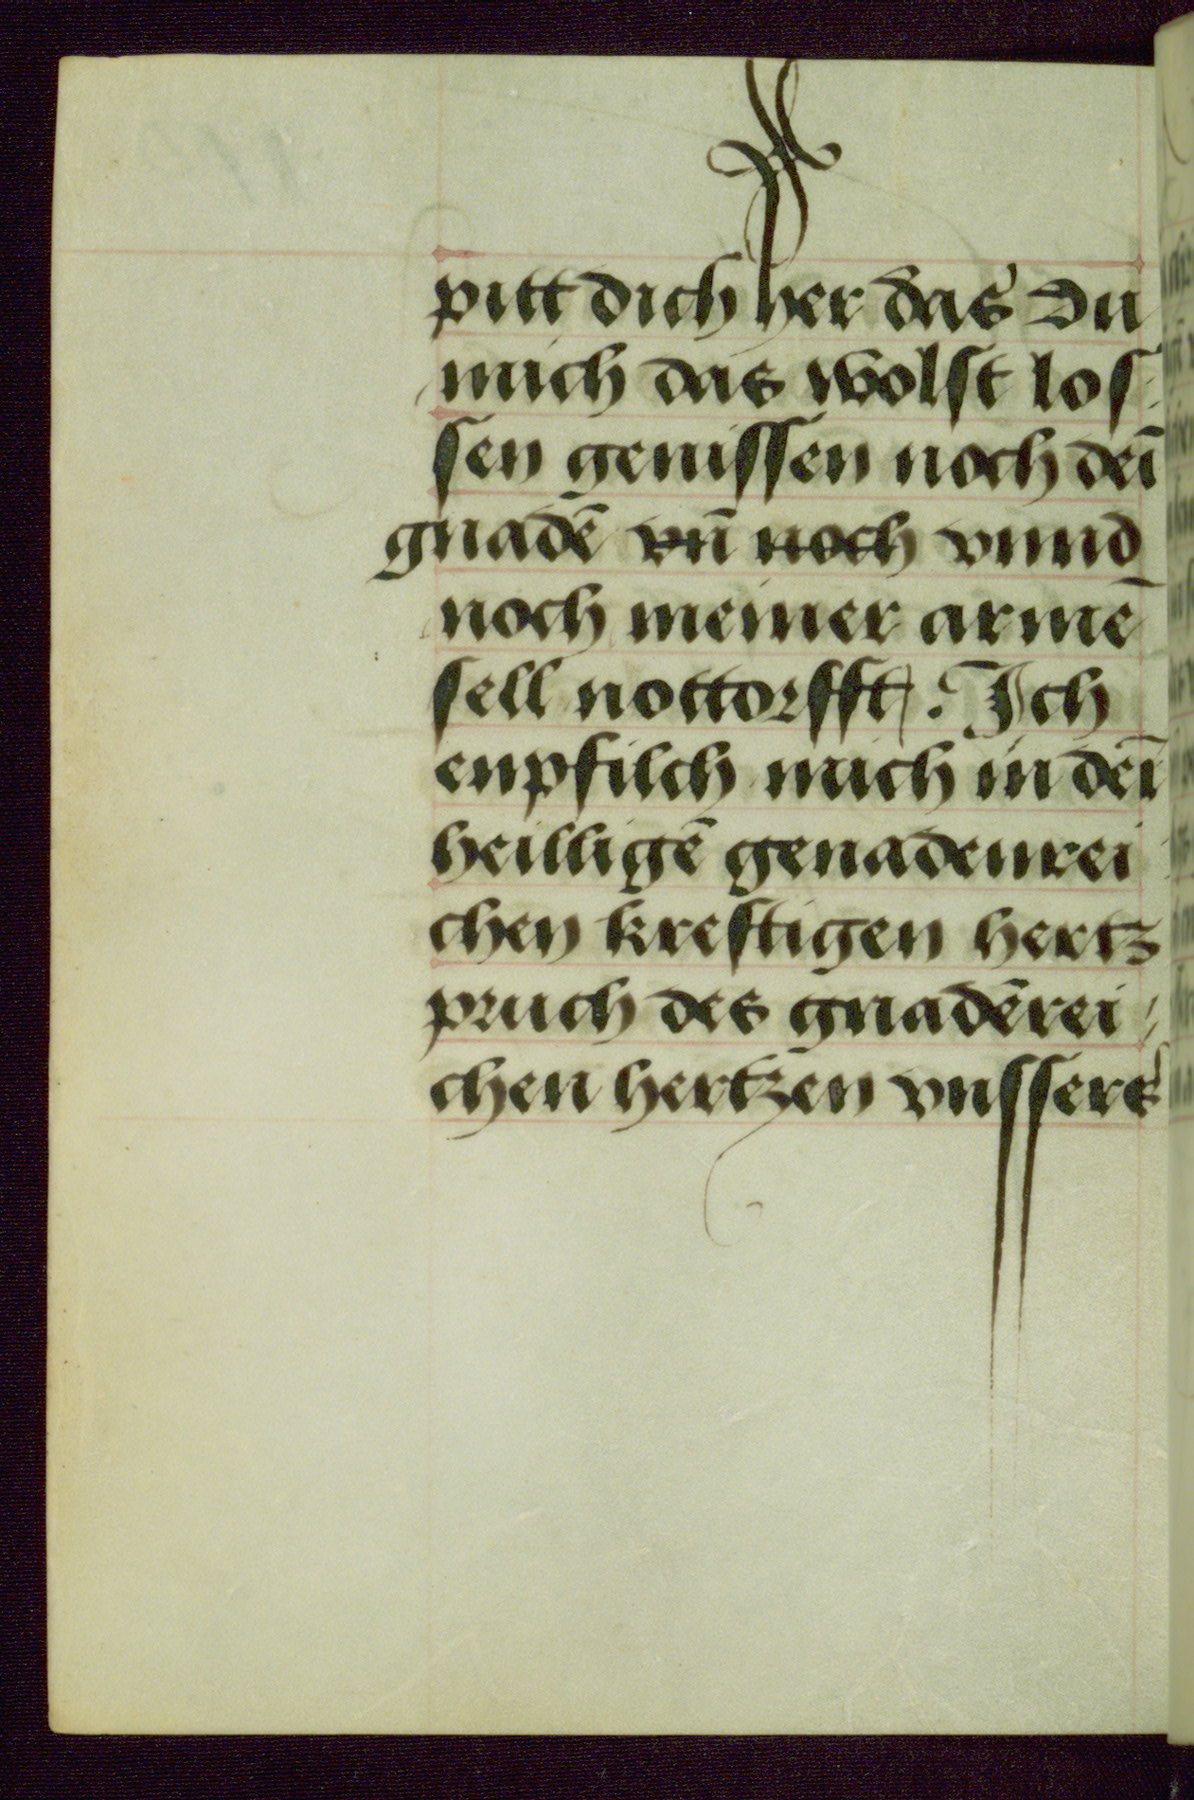 pitt dich her das Du
mich das wolst los:
sen genissen noch dei̅
gnade̅ vn̅ noch vnnd
noch meiner arme̅
sell nottorfft. Ich
enpfilch mich in dei̅
heillige̅ genadenrei
chen kreftigen hertz
pruch des gnade̅rei:
chen hertzen vnssers